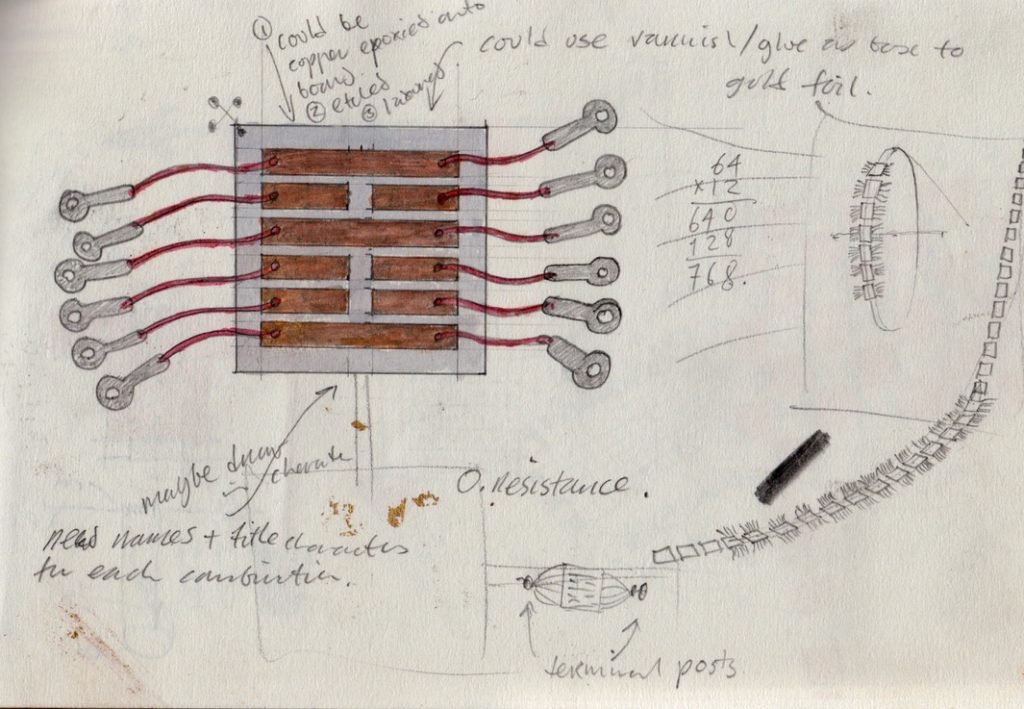 ① could be
copper epoxied onto
board.
② etched
③
could use varnish/glue as base to
gold foil.
64
×12
640
128
768.
maybe draw
in character
need names + title characters
for each combination.
0. resistance.
terminal posts.